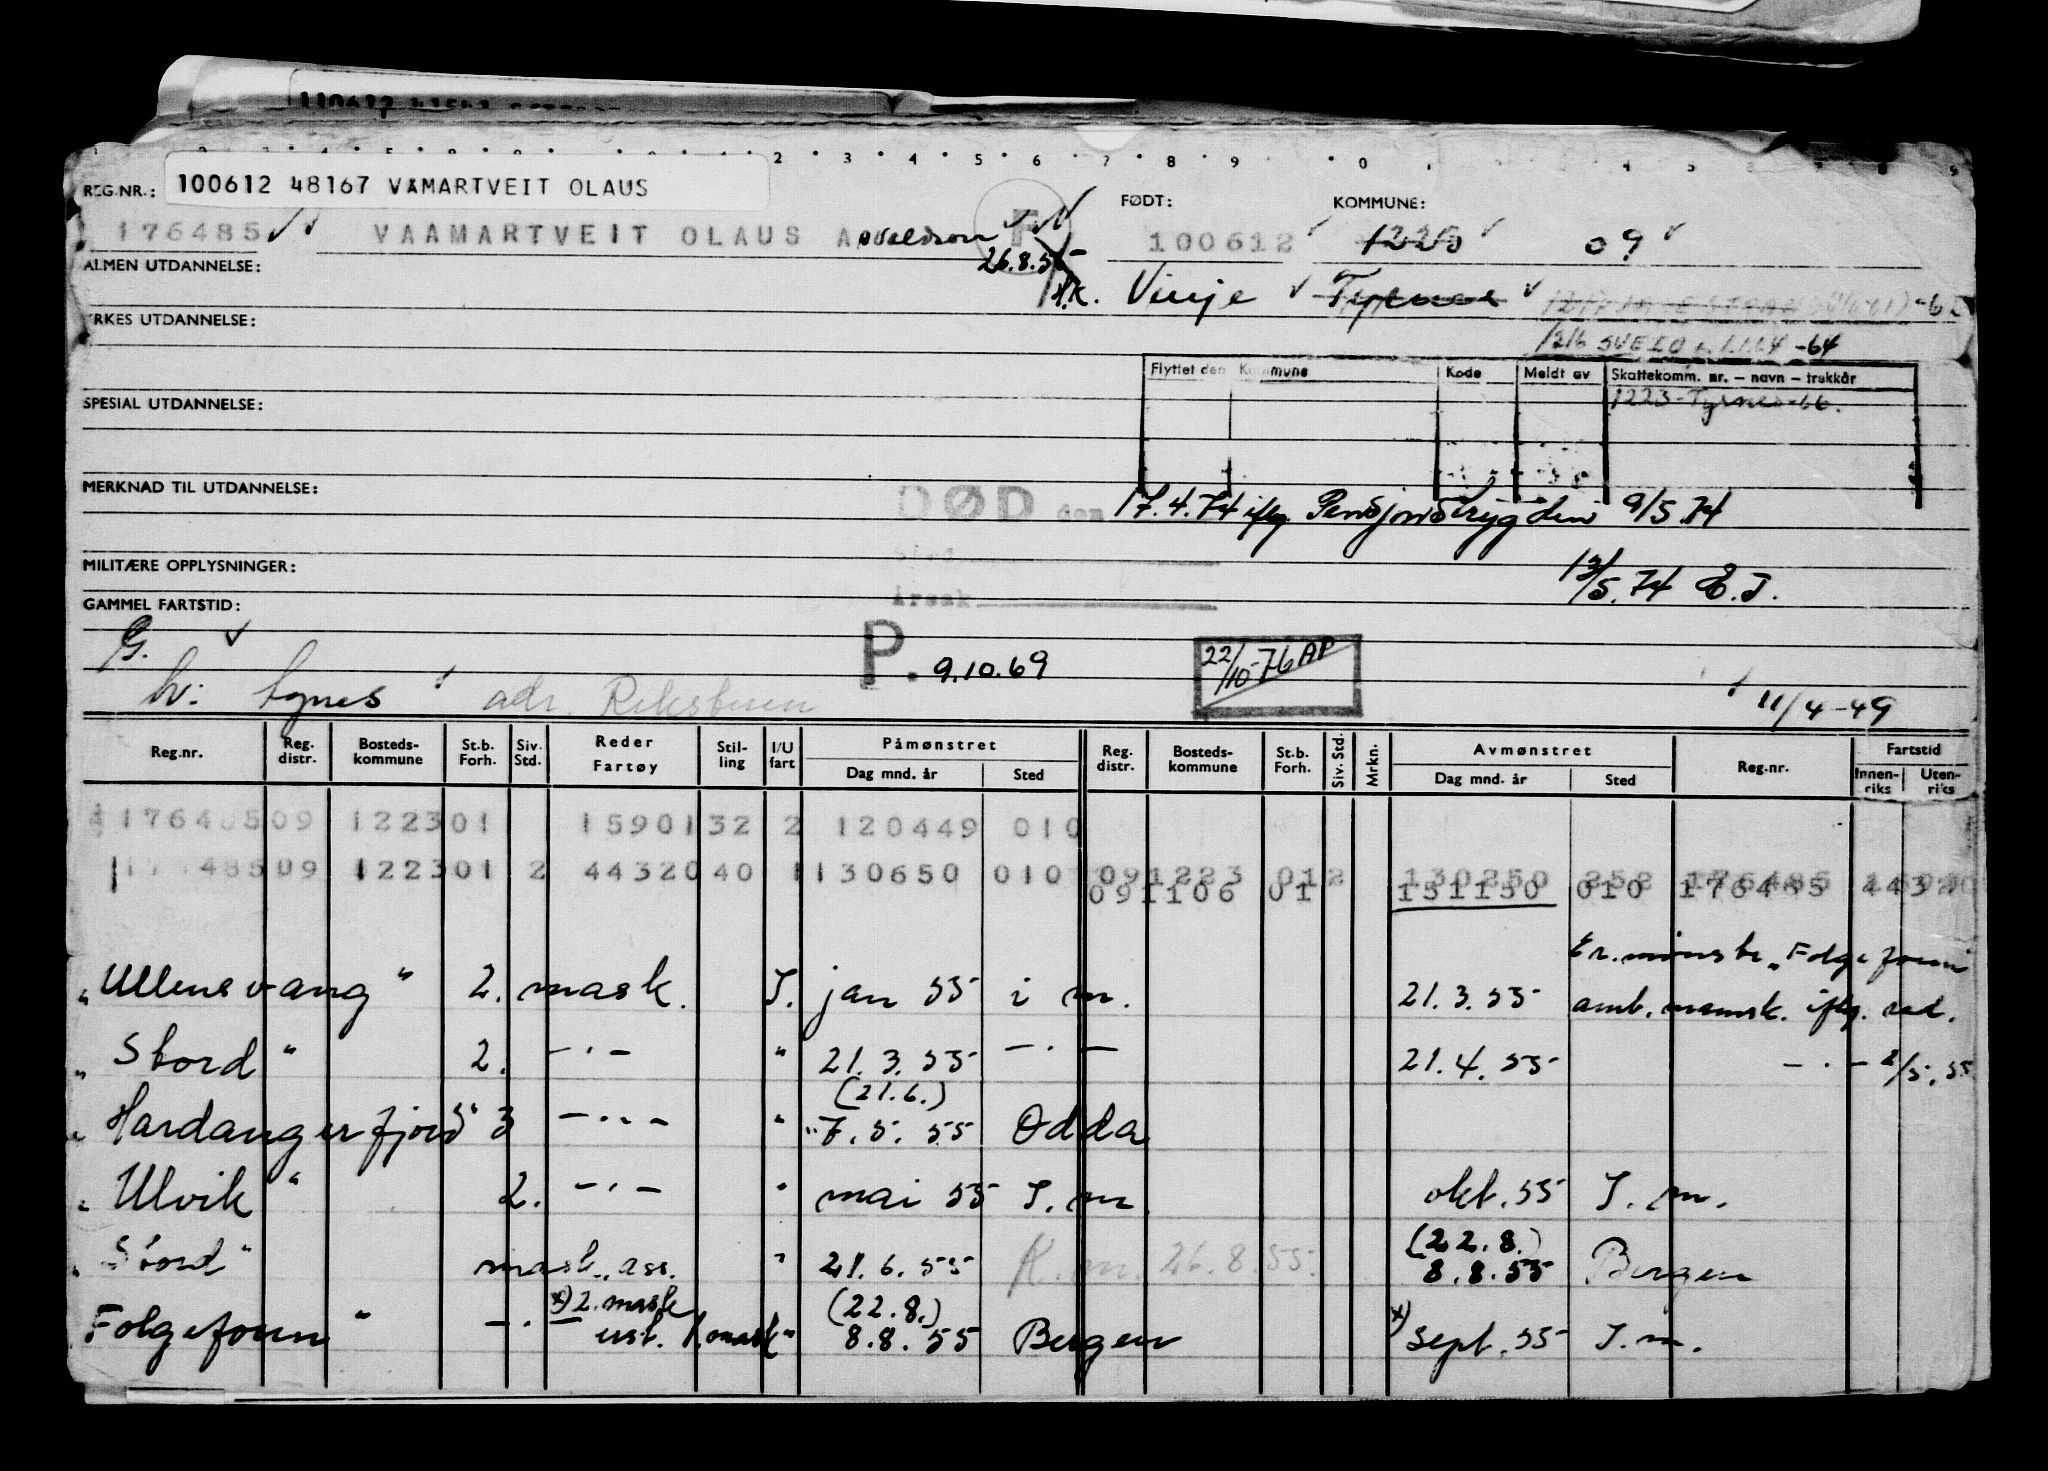 REG.NR.: 100612 48167 VAMARTVEIT OLAUS
FØDT: KOMMUNE:
176485 VAAMARTVEIT OLAUS Aavaldson F 100612 1223 09
26.8.55 H.K.
ALMEN UTDANNELSE: Vinje Tysnes -62
YRKES UTDANNELSE:
1216 SVEIO -64
Flyttet den Kommune Kode Meldt av Skattekomm. nr. – navn – trekkår
SPESIAL UTDANNELSE: 1223-Tysnes-66.
MERKNAD TIL UTDANNELSE:
DØD den 17.4.74 iflg. Pensjonstrygden 9/5.74
Sted
MILITÆRE OPPLYSNINGER: 13/5.74 E.J.
Årsak
GAMMEL FARTSTID:
G.
P. 9.10.69 22/10-76 AP
hv: Agnes adr. Rekstern 11/4-49
Reg.nr. Reg. distr. Bosteds-kommune St.b. Forh. Siv. Std. Reder Fartøy Stil-ling I/U fart Påmønstret Dag mnd. år Sted Reg. distr. Bosteds-kommune St.b. Forh. Siv. Std. Mrkn. Avmønstret Dag mnd. år Sted Reg.nr. Fartstid Innen-riks Uten-riks
17648509 122301 1590132 2 120449 010
09 122301 2 4432040 1 130650 010 091223 012 130250 252 176485
091106 01 151150 010 176485 4432
Er. mønstr. "Folgefonn"
"Ullensvang" 2. mask. I. jan 55 i m. 21.3.55 amb. mønsk. iflg. red.
"Stord" 2. —·— " 21.3.55 —·— 21.4.55 —·— 2/5.55
(21.6.)
"Hardangerfjord" 3 —··— " 7.5.55 Odda
"Ulvik" 2. —·— " mai 55 I.m. okt. 55 I.m.
(22.8.)
"Stord" mask. ass. " 21.6.55 K.m. 26.8.55. 8.8.55 Bergen
x) 2. mask (22.8.)
Folgefonn" —·— ust. 1. mask " 8.8.55 Bergen x) sept. 55 I.m.